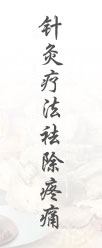 针灸疗法祛除疼痛